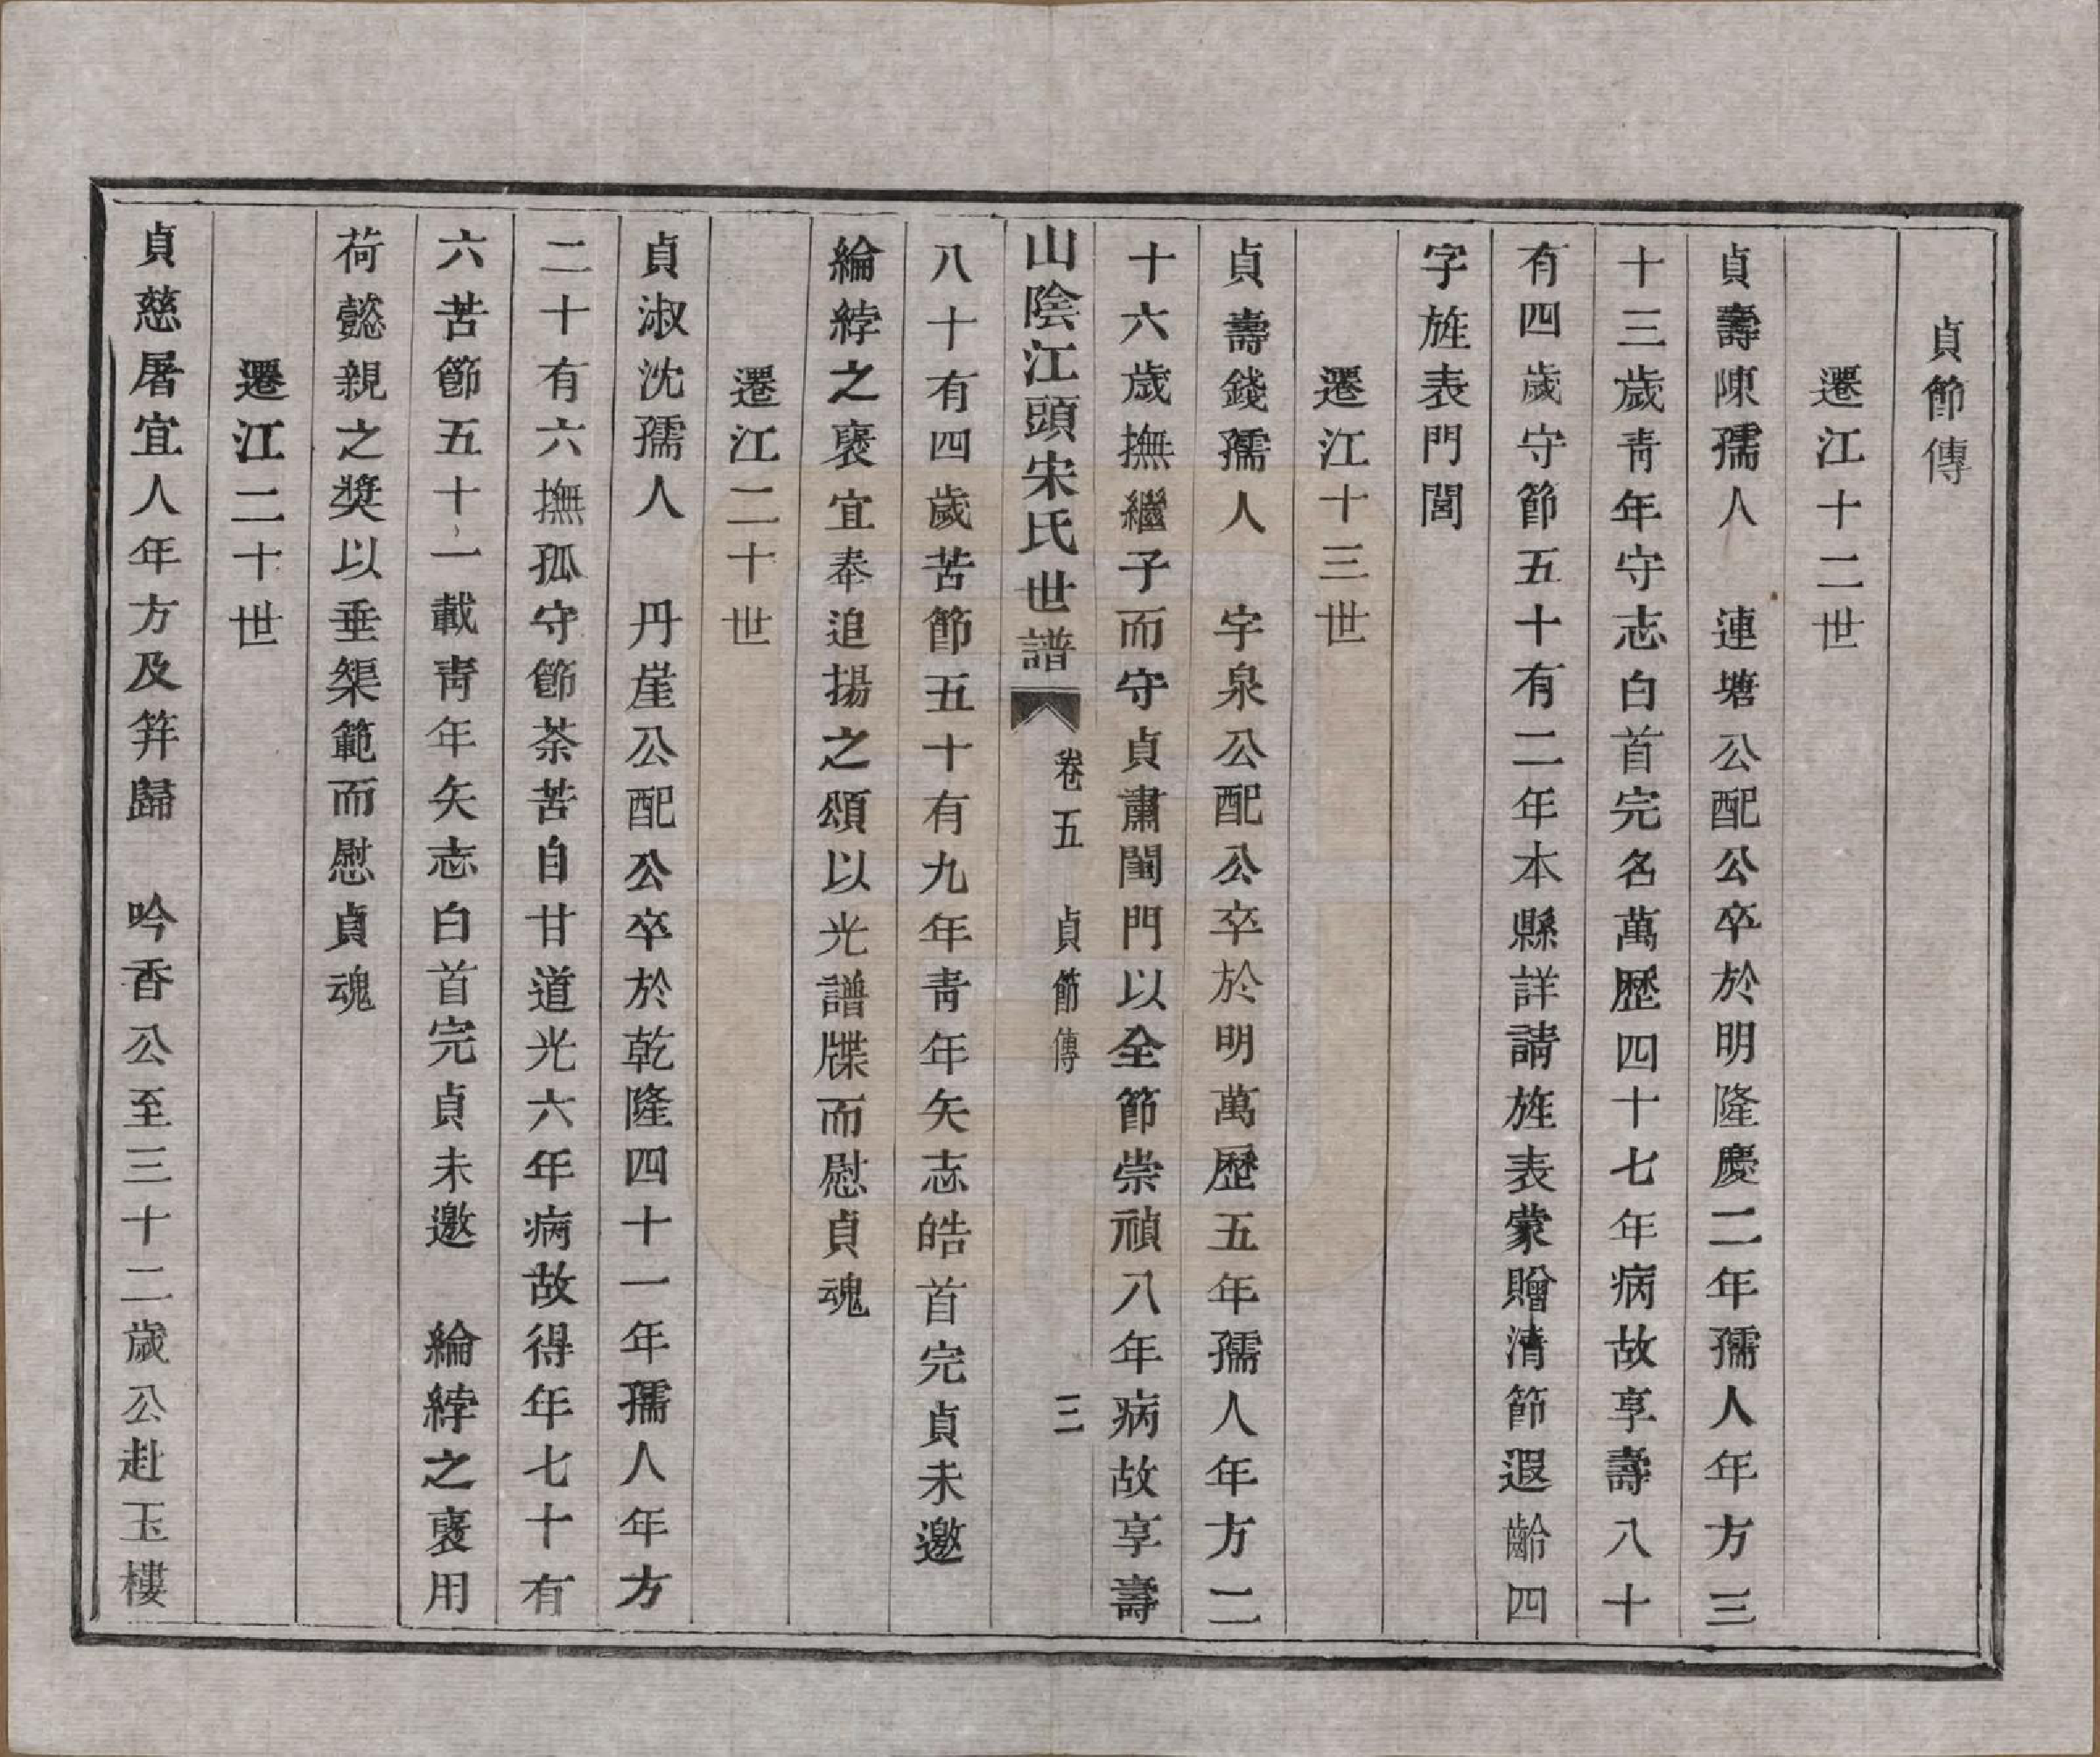 貞節傳
遷江十二世
貞壽陳孺人　連塘公配公卒於明隆慶二年孺人年方三
十三歲青年守志白首完名萬歷四十七年病故享壽八十
有四歲守節五十有二年本縣詳請旌表蒙贈清節遐齡四
字旌表門閭
遷江十三世
貞壽錢孺人　字泉公配公卒於明萬歷五年孺人年方二
十六歲撫繼子而守貞肅閫門以全節崇禎八年病故享壽
山陰江頭宋氏世譜　卷五　貞節傳　三
八十有四歲苦節五十有九年青年矢志皓首完貞未邀
綸綍之褒宜奉追揚之頌以光譜牒而慰貞魂
遷江二十世
貞淑沈孺人　丹崖公配公卒於乾隆四十一年孺人年方
二十有六撫孤守節茶苦自甘道光六年病故得年七十有
六苦節五十一載青年矢志白首完貞未邀　綸綍之褒用
荷懿親之獎以垂榘範而慰貞魂
遷江二十世
貞慈屠宜人年方及笄歸　吟香公至三十二歲公赴玉樓